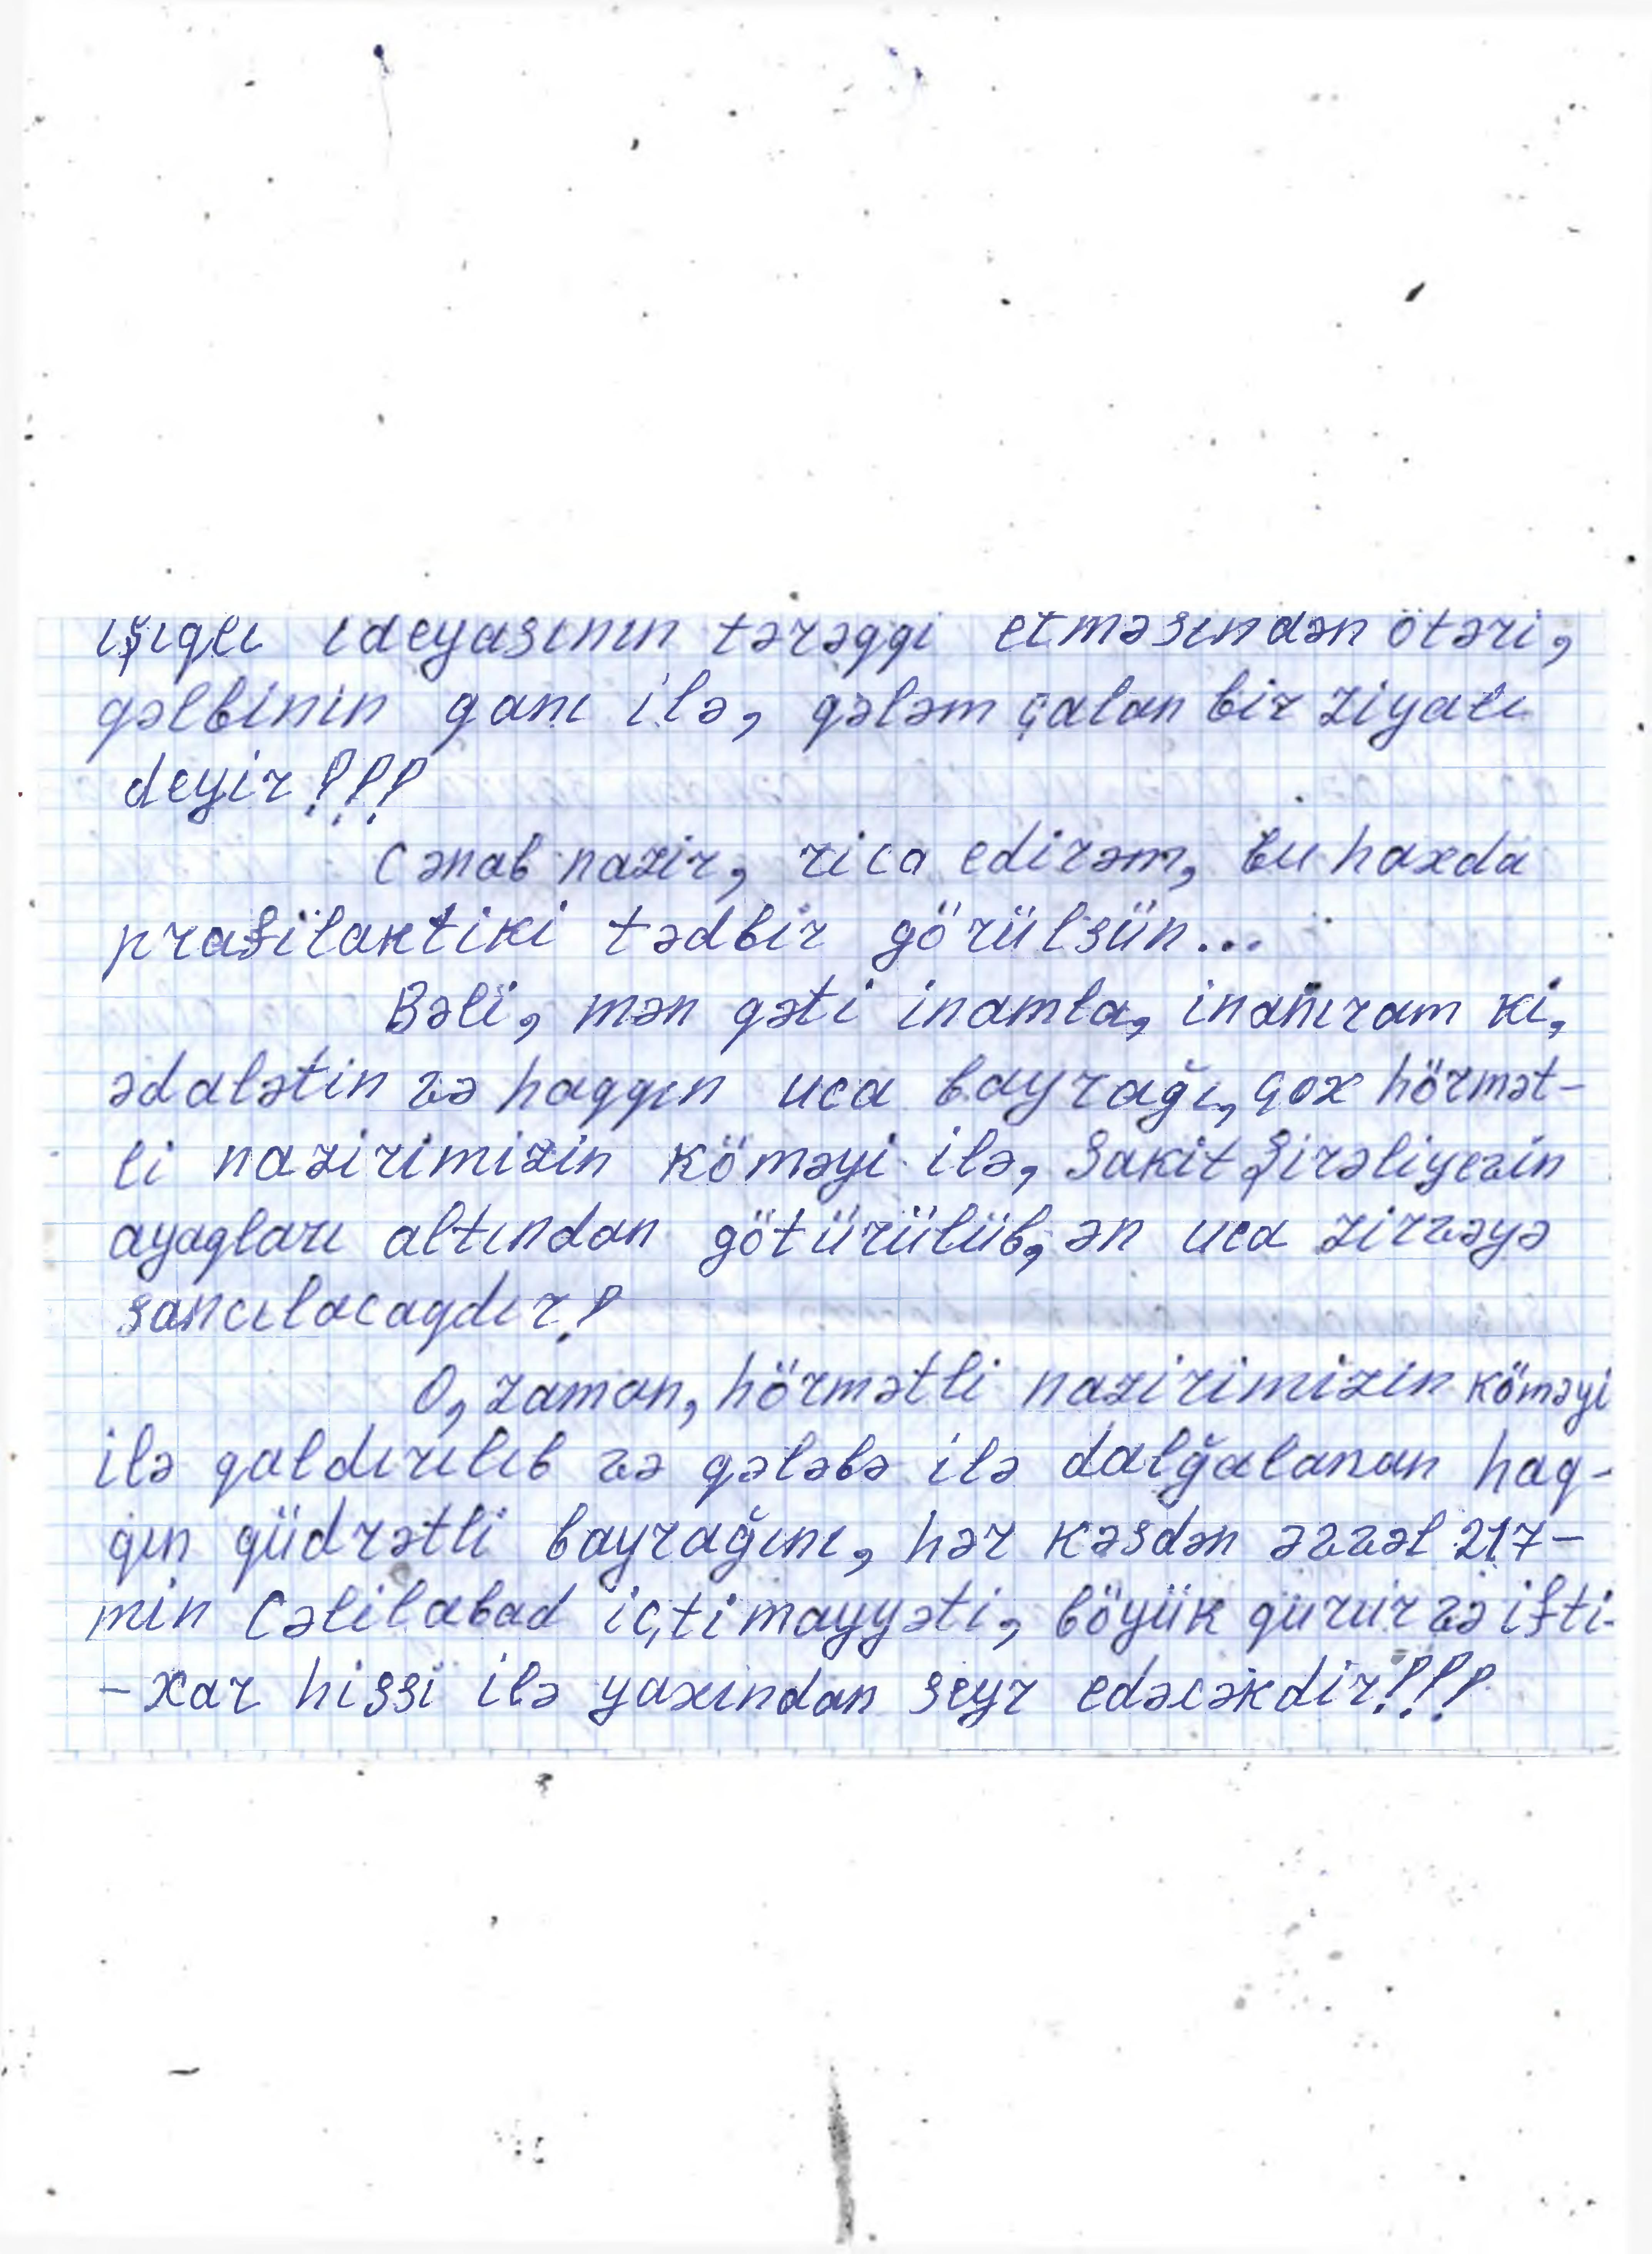 işıqlı ideyasının tərəqqi etməsindən ötəri,
qəlbinin qanı ilə, qələm çalan bir ziyalı
deyir!!!
Cənab nazir, rica edirəm, bu haxda
prafilaktiki tədbir görülsün...
Bəli, mən qəti inamla, inanıram ki,
ədalətin və haqqın uca bayrağı, çox hörmət-
li nazirimizin köməyi ilə, Sakit Şirəliyevin
ayaqları altından götürülüb, ən uca zirvəyə
sancılacaqdır!
O, zaman, hörmətli nazirimizin köməyi
ilə qaldırılıb və qələbə ilə dalğalanan haq-
qın qüdrətli bayrağını, hər kəsdən əvvəl 217-
min Cəlilabad içtimayyəti, böyük qürur və ifti-
-xar hissi ilə yaxından seyr edəcəkdir!!!